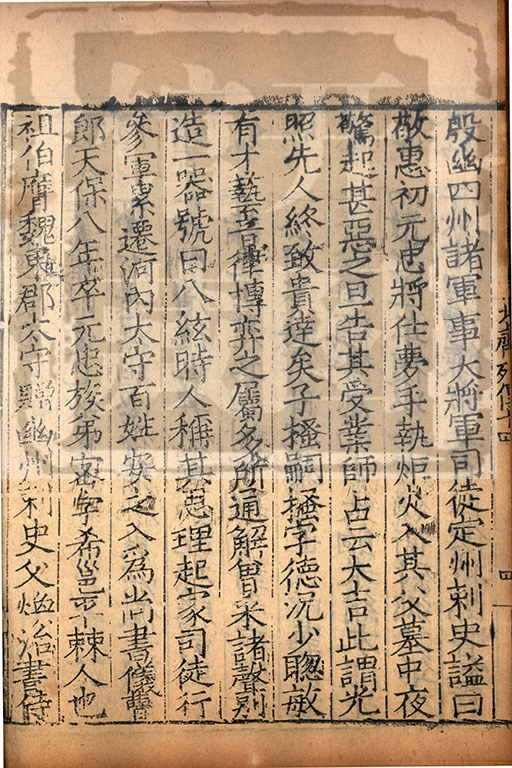 殷幽四州諸軍事大將軍司徒定州刺史謚曰
敬惠初元忠將仕夢手執炬火入其父墓中夜
驚起甚惡之旦告其受業師占云大吉此謂光
照先人終致貴達矣子搔嗣搔字德況少聰敏
有才藝音律博弈之屬多所通解曽采諸聲別
造一器號曰八絃時人稱其思理起家司徒行
參軍累遷河內太守百姓安之入爲尚書儀曹
郎天保八年卒元忠族弟密字希邕平棘人也
祖伯膺魏東郡太守贈幽州刺史父煥治書侍
北齊列傳十四
四